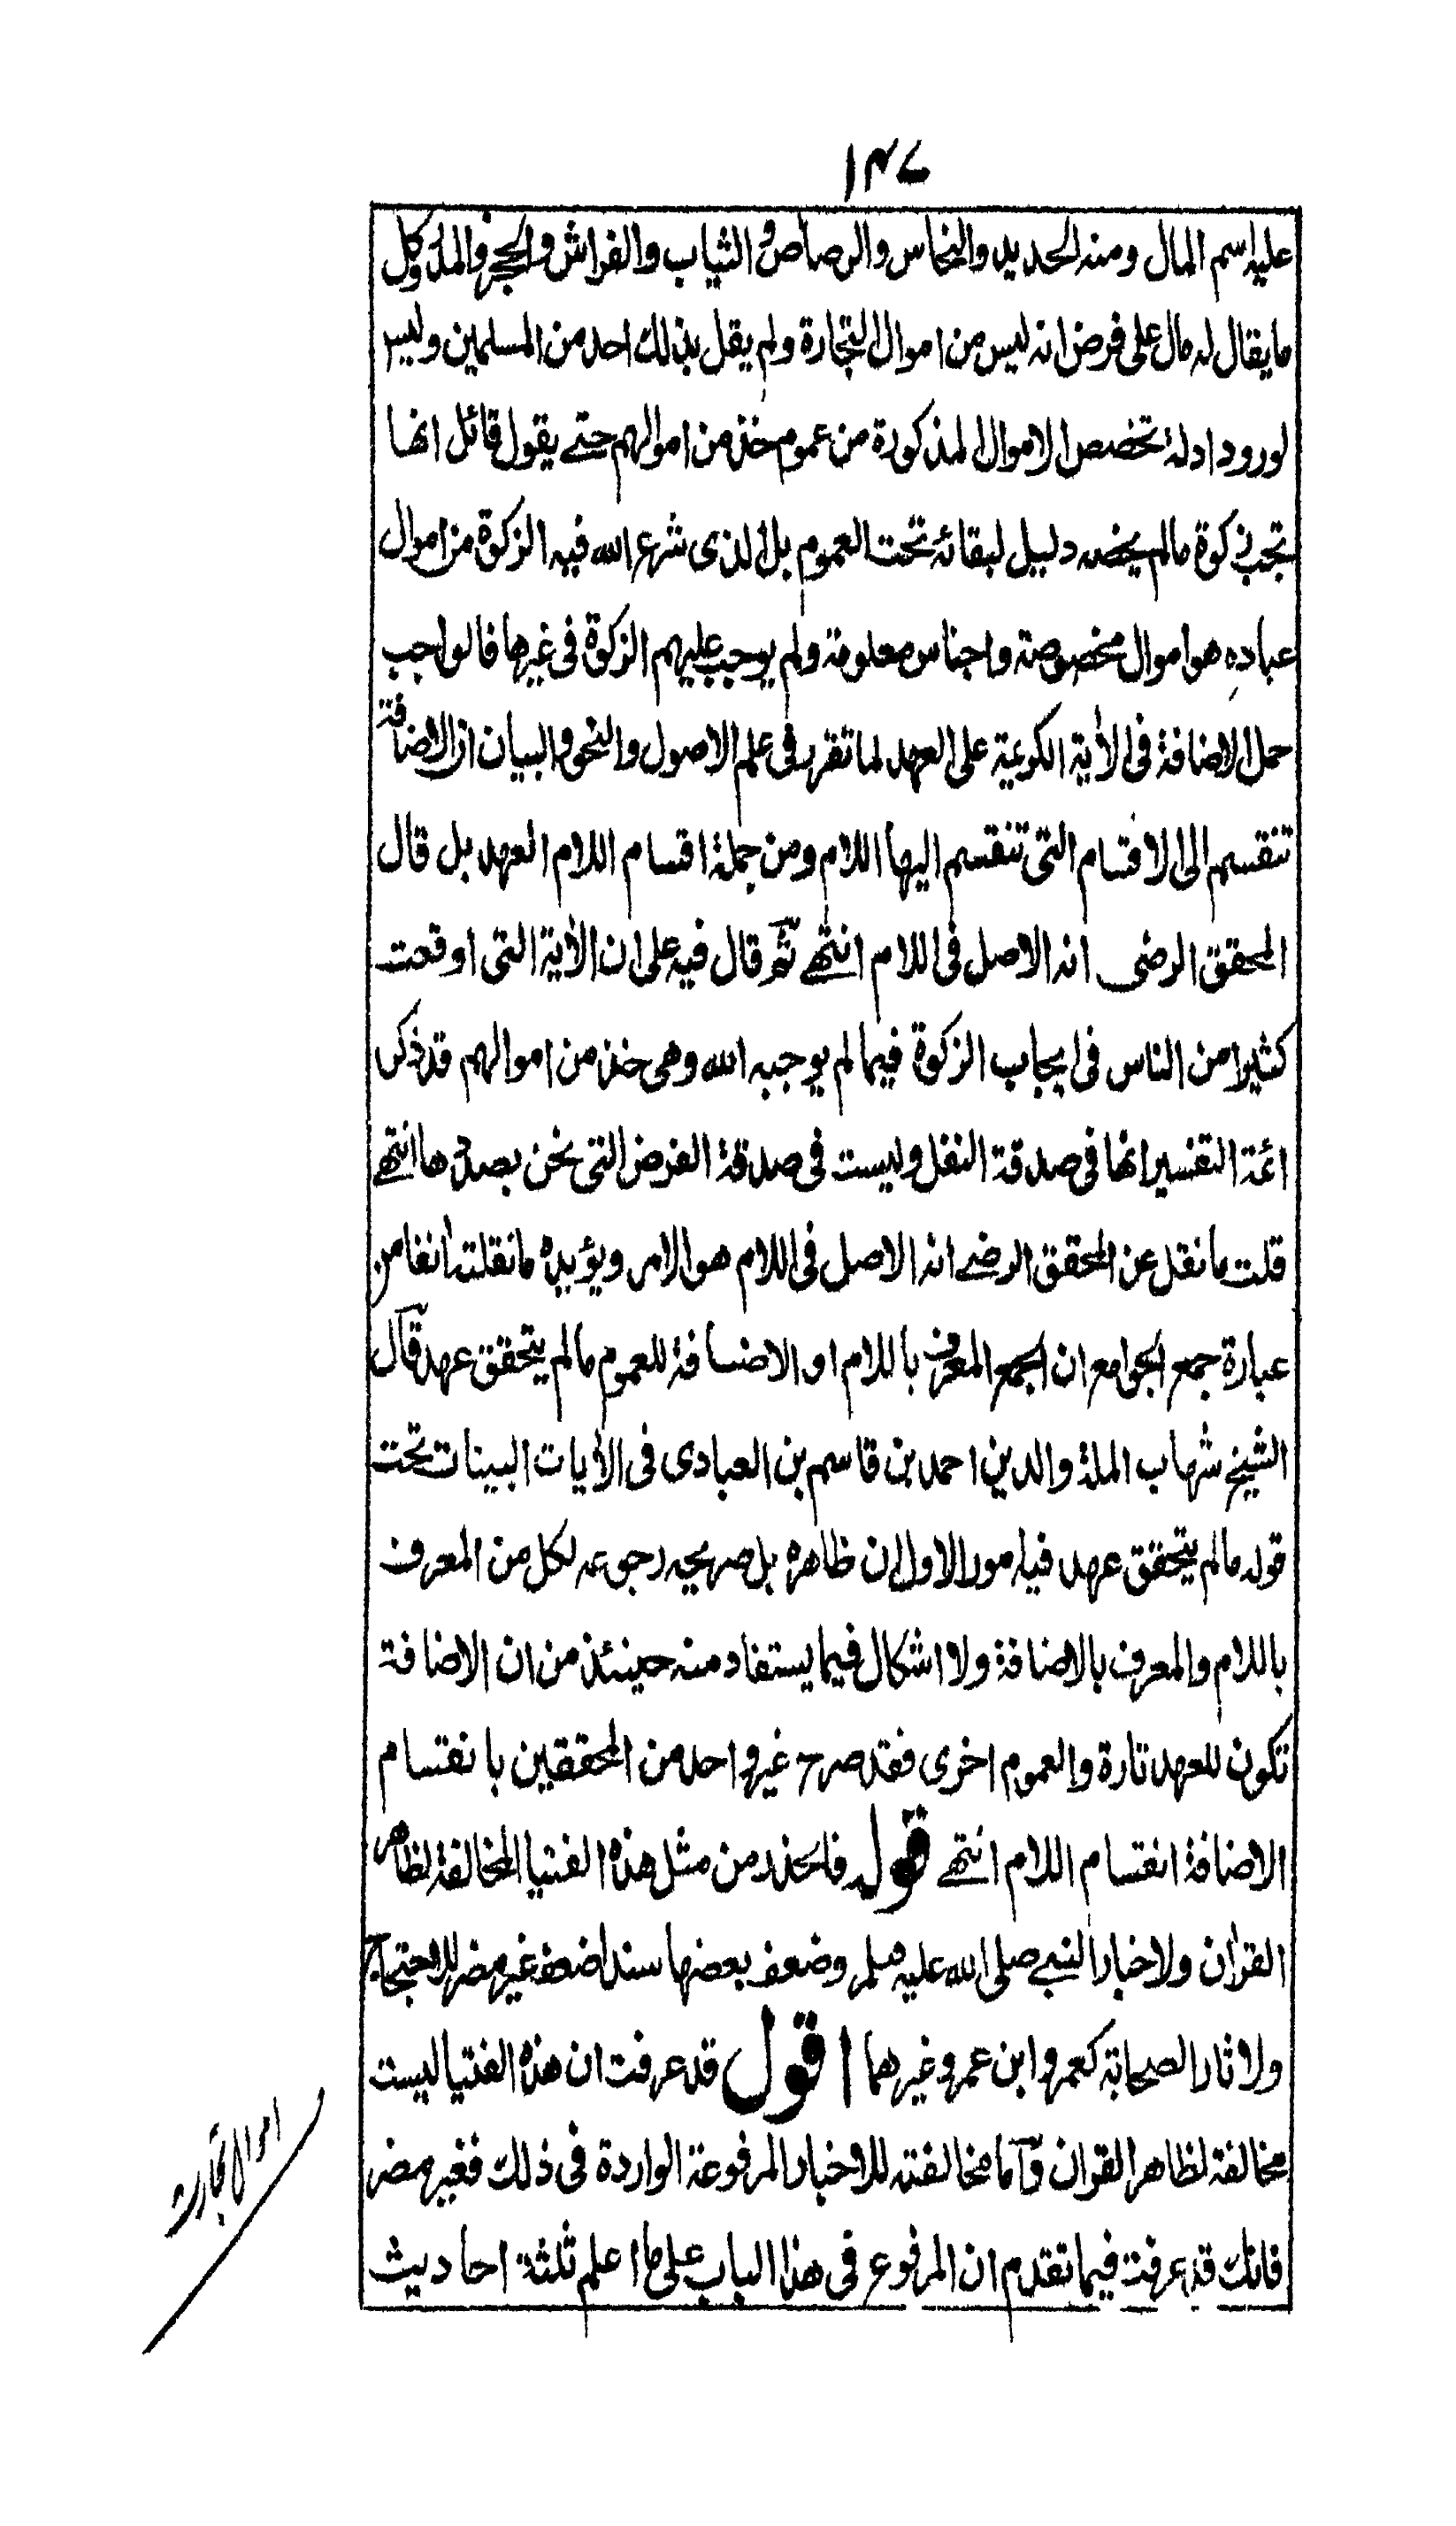 ١٣٧
عليه اسم المال ومنه الحديد والنحاس والرصاص والثياب والفراش والحجر والمدر وكل
ما يقال له مال على فرض انه ليس من اموال التجارة ولم يقل بذلك احد من المسلمين وليس
لورود ادلة تخصص الاموال المذكورة من عموم خذ من اموالهم حتے يقول قائل انها
تجب زكوة مالم يخصه دليل لبقائه تحت العموم بل الذى شرع الله فيه الزكوة من اموال
عباده هو اموال مخصوصة واجناس معلومة ولم يوجب عليهم الزكوة فى غيرها فالواجب
حمل الاضافة فى الأية الكريمة على العهد لما تقرر فى علم الاصول والنحو والبيان ان الاضافة
تنقسم الى الاقسام التى تنقسم اليها اللام ومن جملة اقسام اللام العهد بل قال
المحقق الرضى انه الاصل فى اللام انتهے ثم قال فيه على ان الأية التى اوقعت
كثيرا من الناس فى ايجاب الزكوة فيما لم يوجبه الله وهى خذ من اموالهم قد ذكر
ائمة التفسير انها فى صدقة النفل وليست فى صدقة الفرض التى نحن بصددها انتهے
قلت ما نقل عن المحقق الرضے انه الاصل فى اللام هو الامر ويؤيده ما نقلته أنفا من
عبارة جمع الجوامع ان الجمع المعرف باللام او الاضافة للعموم مالم يتحقق عهد قال
الشيخ شهاب الملة والدين احمد بن قاسم بن العبادى فى الأيات البينات تحت
قوله مالم يتحقق عهد فيه امور الاول ان ظاهره بل صريحه رجوعه لكل من المعرف
باللام والمعرف بالاضافة ولا اشكال فيما يستفاد منه حينئذ من ان الاضافة
تكون للعهد تارة والعموم اخرى فقد صرح غير واحد من المحققين بانقسام
الاضافة انقسام اللام انتهے قوله فالحذر من مثل هذه الفتيا المخالفة لظاهر
القرأن ولاخبار النبے صلى الله عليه وسلم وضعف بعضها سندا ضعف غير مضر للاحتجاج
ولاثار الصحابة كعمر وابن عمر وغيرهما اقول قد عرفت ان هذه الفتيا ليست
مخالفة لظاهر القران وأما مخالفته للاخبار المرفوعة الواردة فى ذلك فغير مضر
فانك قد عرفت فيما تقدم ان المرفوع فى هذا الباب على ما اعلم ثلثة احاديث
اموال تجارت